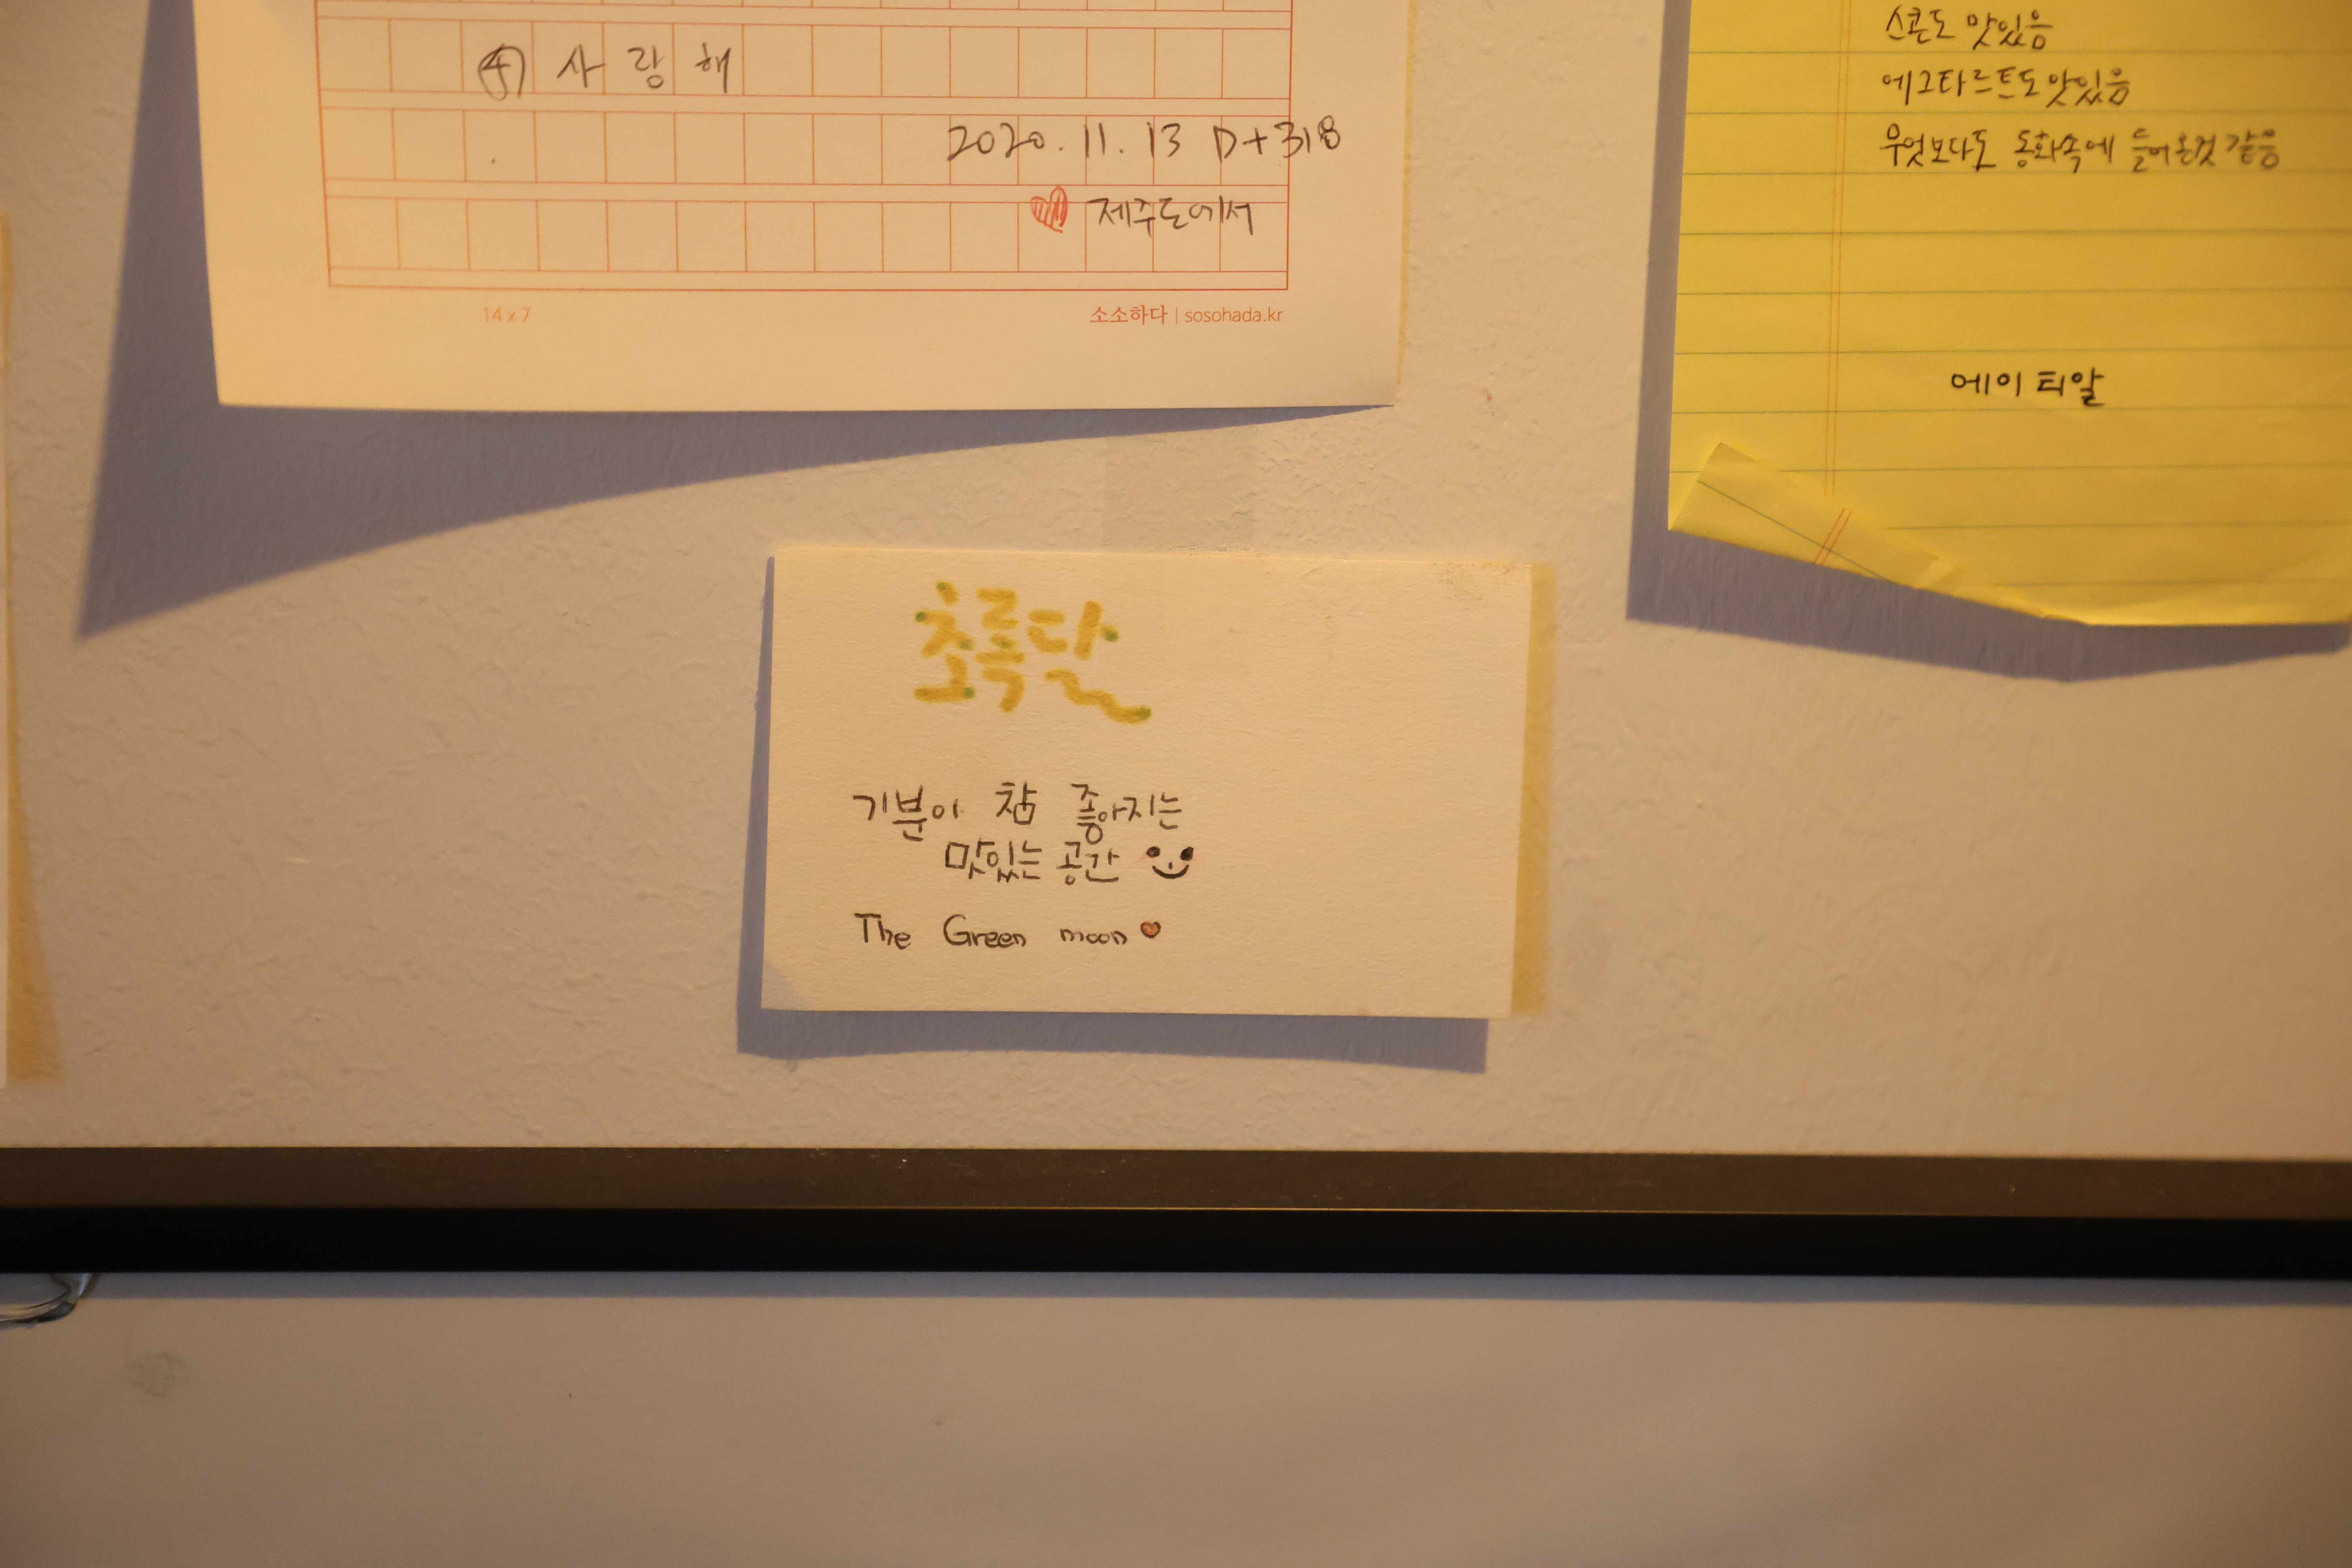 ④ 사랑해
2020. 11. 13 D+318
제주도에서
14 x 7
소소하다 | sosohada.kr
스콘도 맛있음
에그타르트도 맛있음
무엇보다도 동화속에 들어온것 같음
에이티알
초록달
기분이 참 좋아지는
맛있는 공간
The Green moon